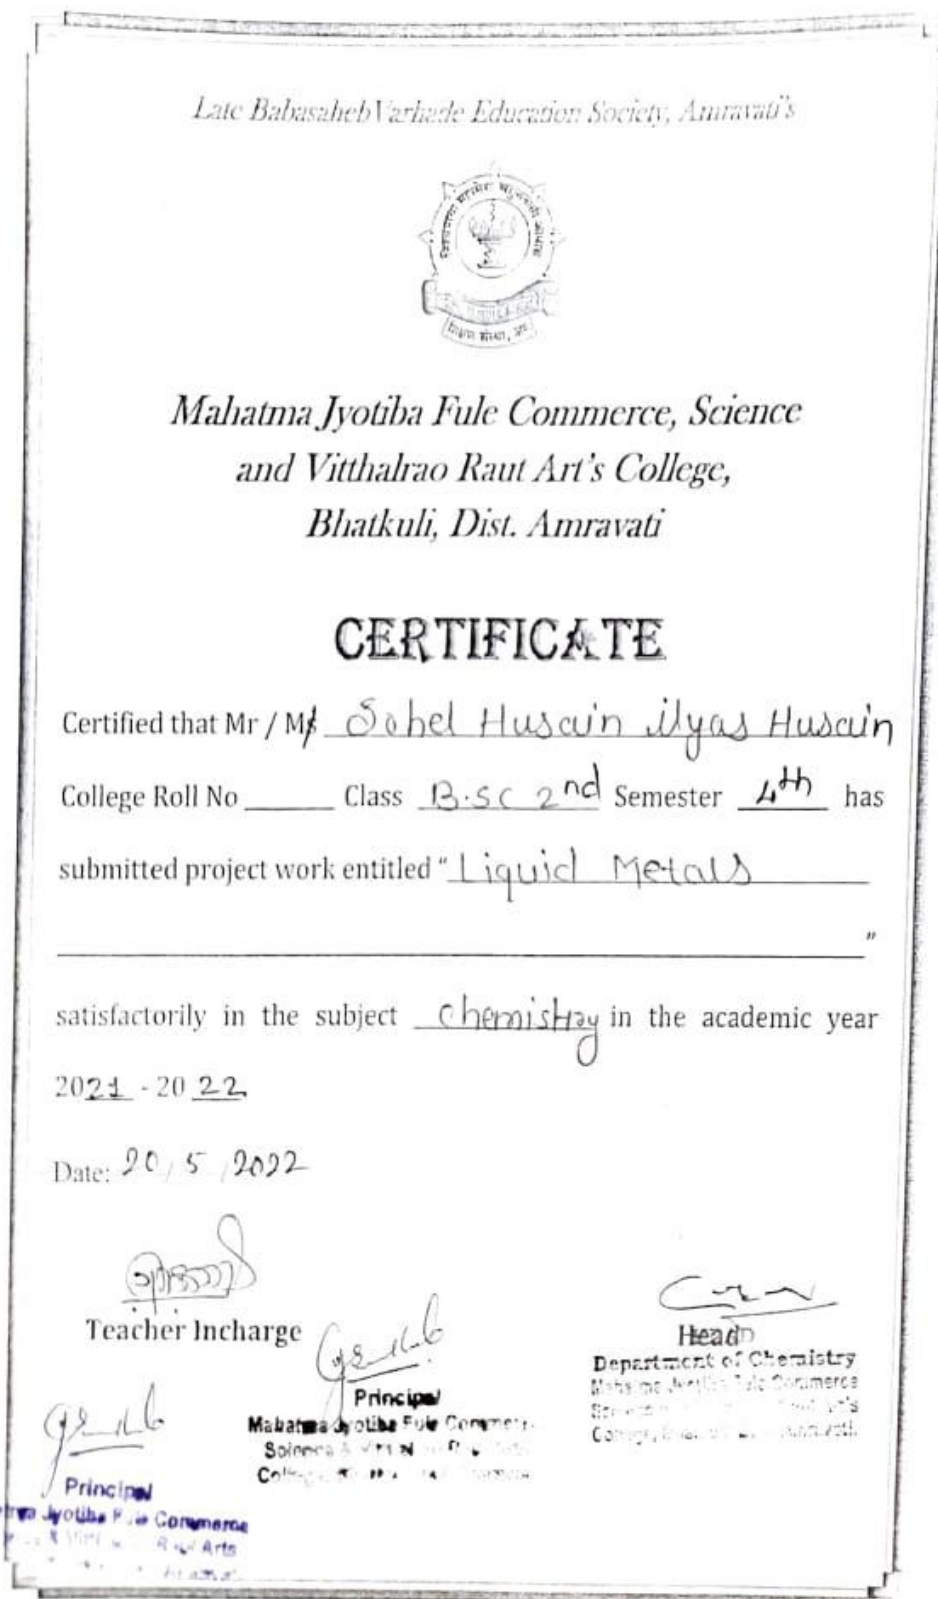 Late Babasaheb Varhade Education Society, Amravati's
Mahatma Jyotiba Fule Commerce, Science
and Vitthalrao Raut Art's College,
Bhatkuli, Dist. Amravati
CERTIFICATE
Certified that Mr / Ms Sohel Husain ilyas Husain
College Roll No ______ Class B.SC 2nd Semester 4th has
submitted project work entitled " Liquid Metals
"
satisfactorily in the subject chemistry in the academic year
2021 - 2022
Date: 20/5/2022
Teacher Incharge
Head
Department of Chemistry
Mahatma Jyotiba Fule Commerce
Principal
Mahatma Jyotiba Fule Commerce
Science &
Principal
Jyotiba Fule Commerce
Raut Arts